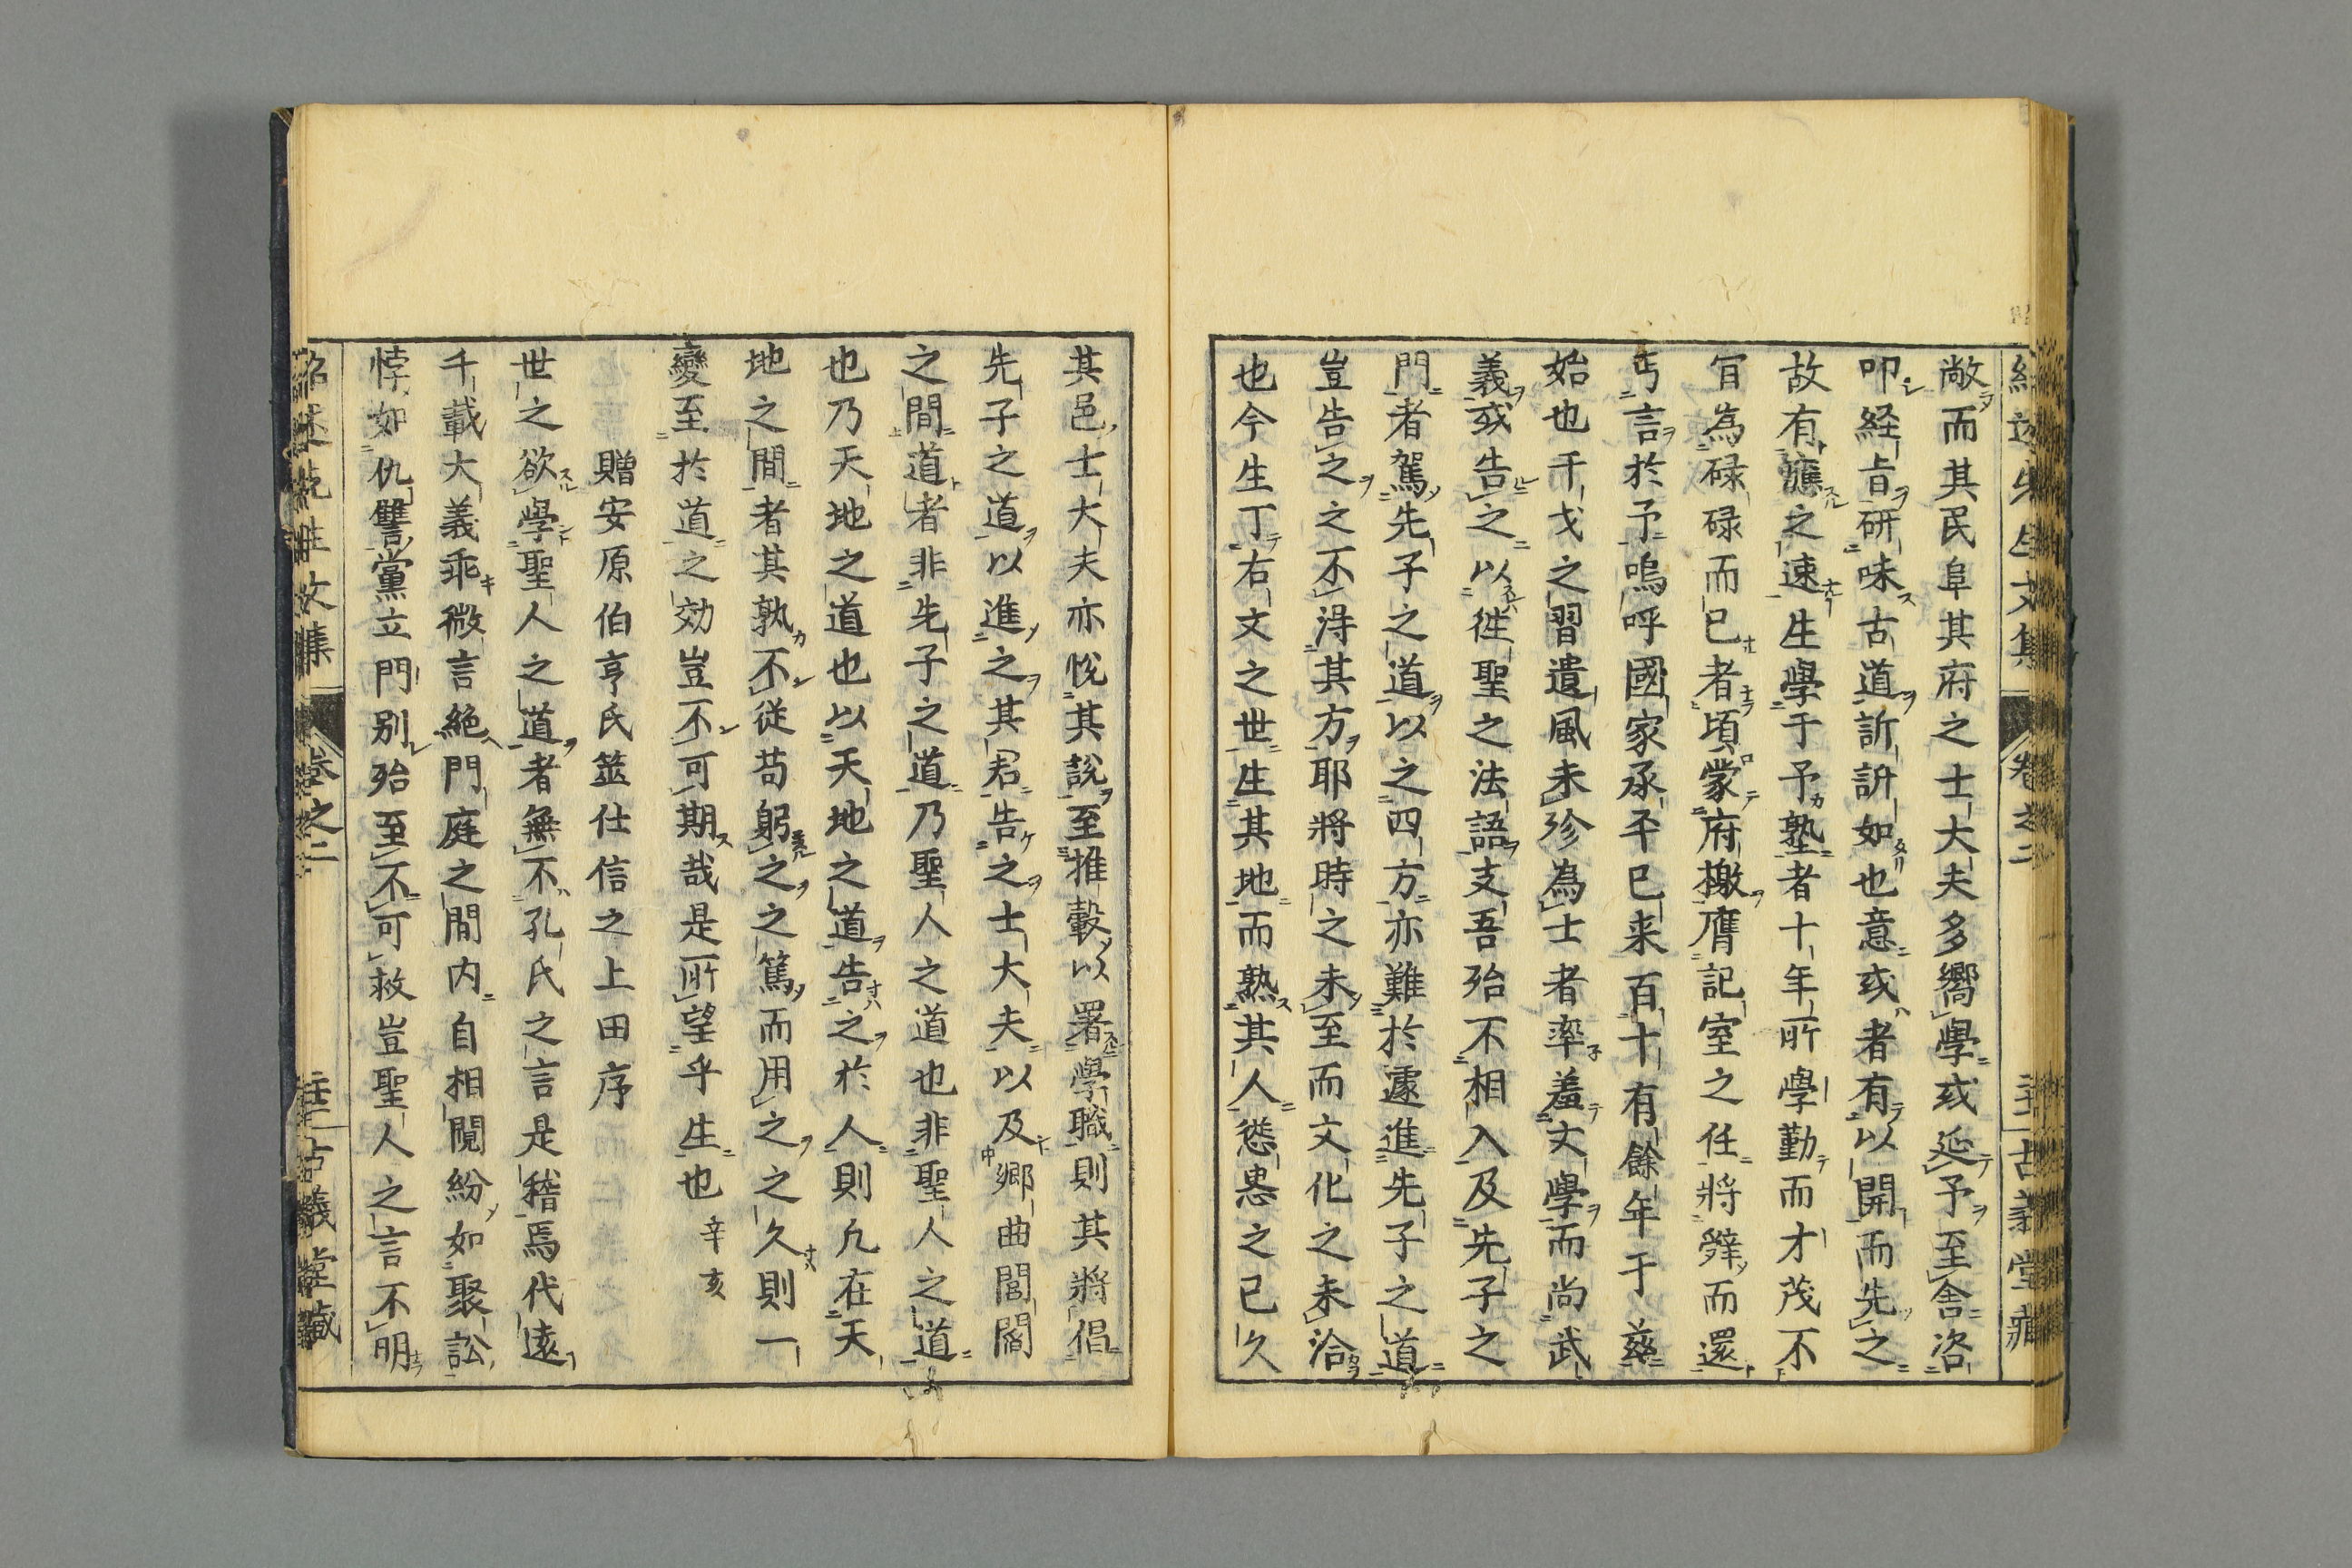 敞而其民阜其府之士大夫多嚮學或延予至舍咨
叩経旨研味古道訢訢如也意或者有以開而先之
故有應之速生學于予塾者十年所學勤而才茂不
肎為碌碌而已者頃蒙府檄膺記室之任將辤而還
丐言於予嗚呼國家承平已来百十有餘年于茲
始也干戈之習遺風未殄為士者率羞文學而尚武
義或告之以徃聖之法語支吾殆不相入及先子之
門者駕先子之道以之四方亦難於遽進先子之道
豈告之之不淂其方耶將時之未至而文化之未洽
也今生丁右文之世生其地而熟其人慫恿之已久
其邑士大夫亦悅其說至推轂以署學職則其將倡
先子之道以進之其君告之士大夫以及鄉曲閭閻
之間道者非先子之道乃聖人之道也非聖人之道
也乃天地之道也以天地之道告之於人則凡在天
地之間者其孰不従苟躬之之篤而用之之久則一
變至於道之効豈不可期哉是所望乎生也 辛亥
贈安原伯亨氏筮仕信之上田序
世之欲學聖人之道者無不孔氏之言是稽焉代遠
千載大義乖微言絶門庭之間内自相鬩紛如聚訟
悖如仇讐黨立門别殆至不可救豈聖人之言不明
紹述先生文集 卷之二 古義堂藏